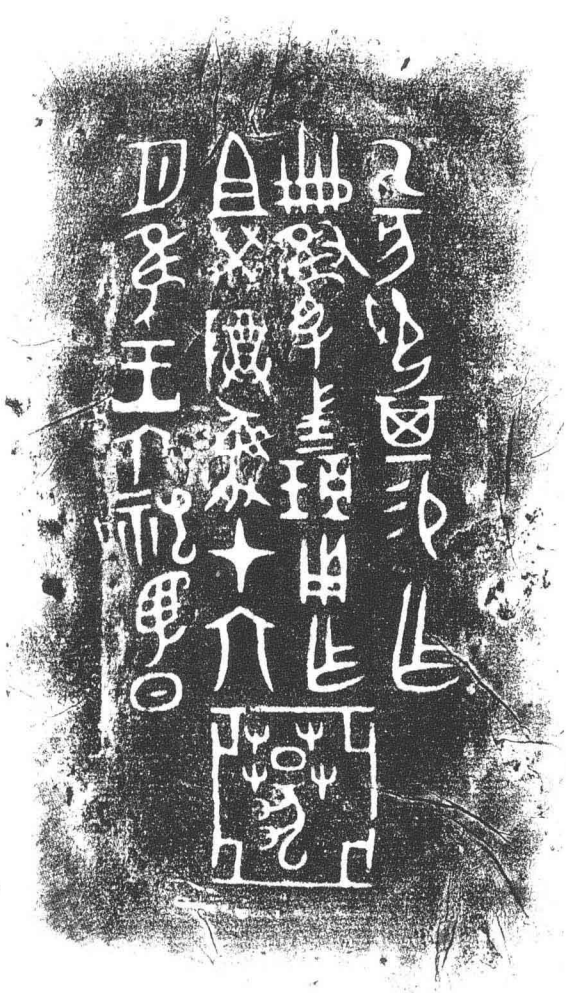 乙亥邲其易乍
册一一用乍
且癸尊彝才六
月隹王六祀翌日
亞